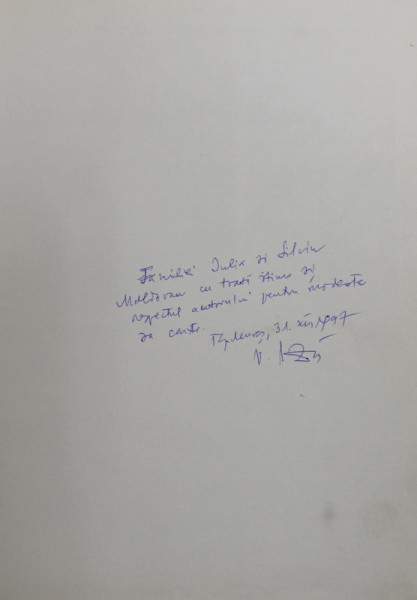 Familiei Iulia și Silviu
Moldovan cu toată stima și
respectul autorului pentru modesta
sa carte.
Tg. Mureș, 31. XII. 1997
V.